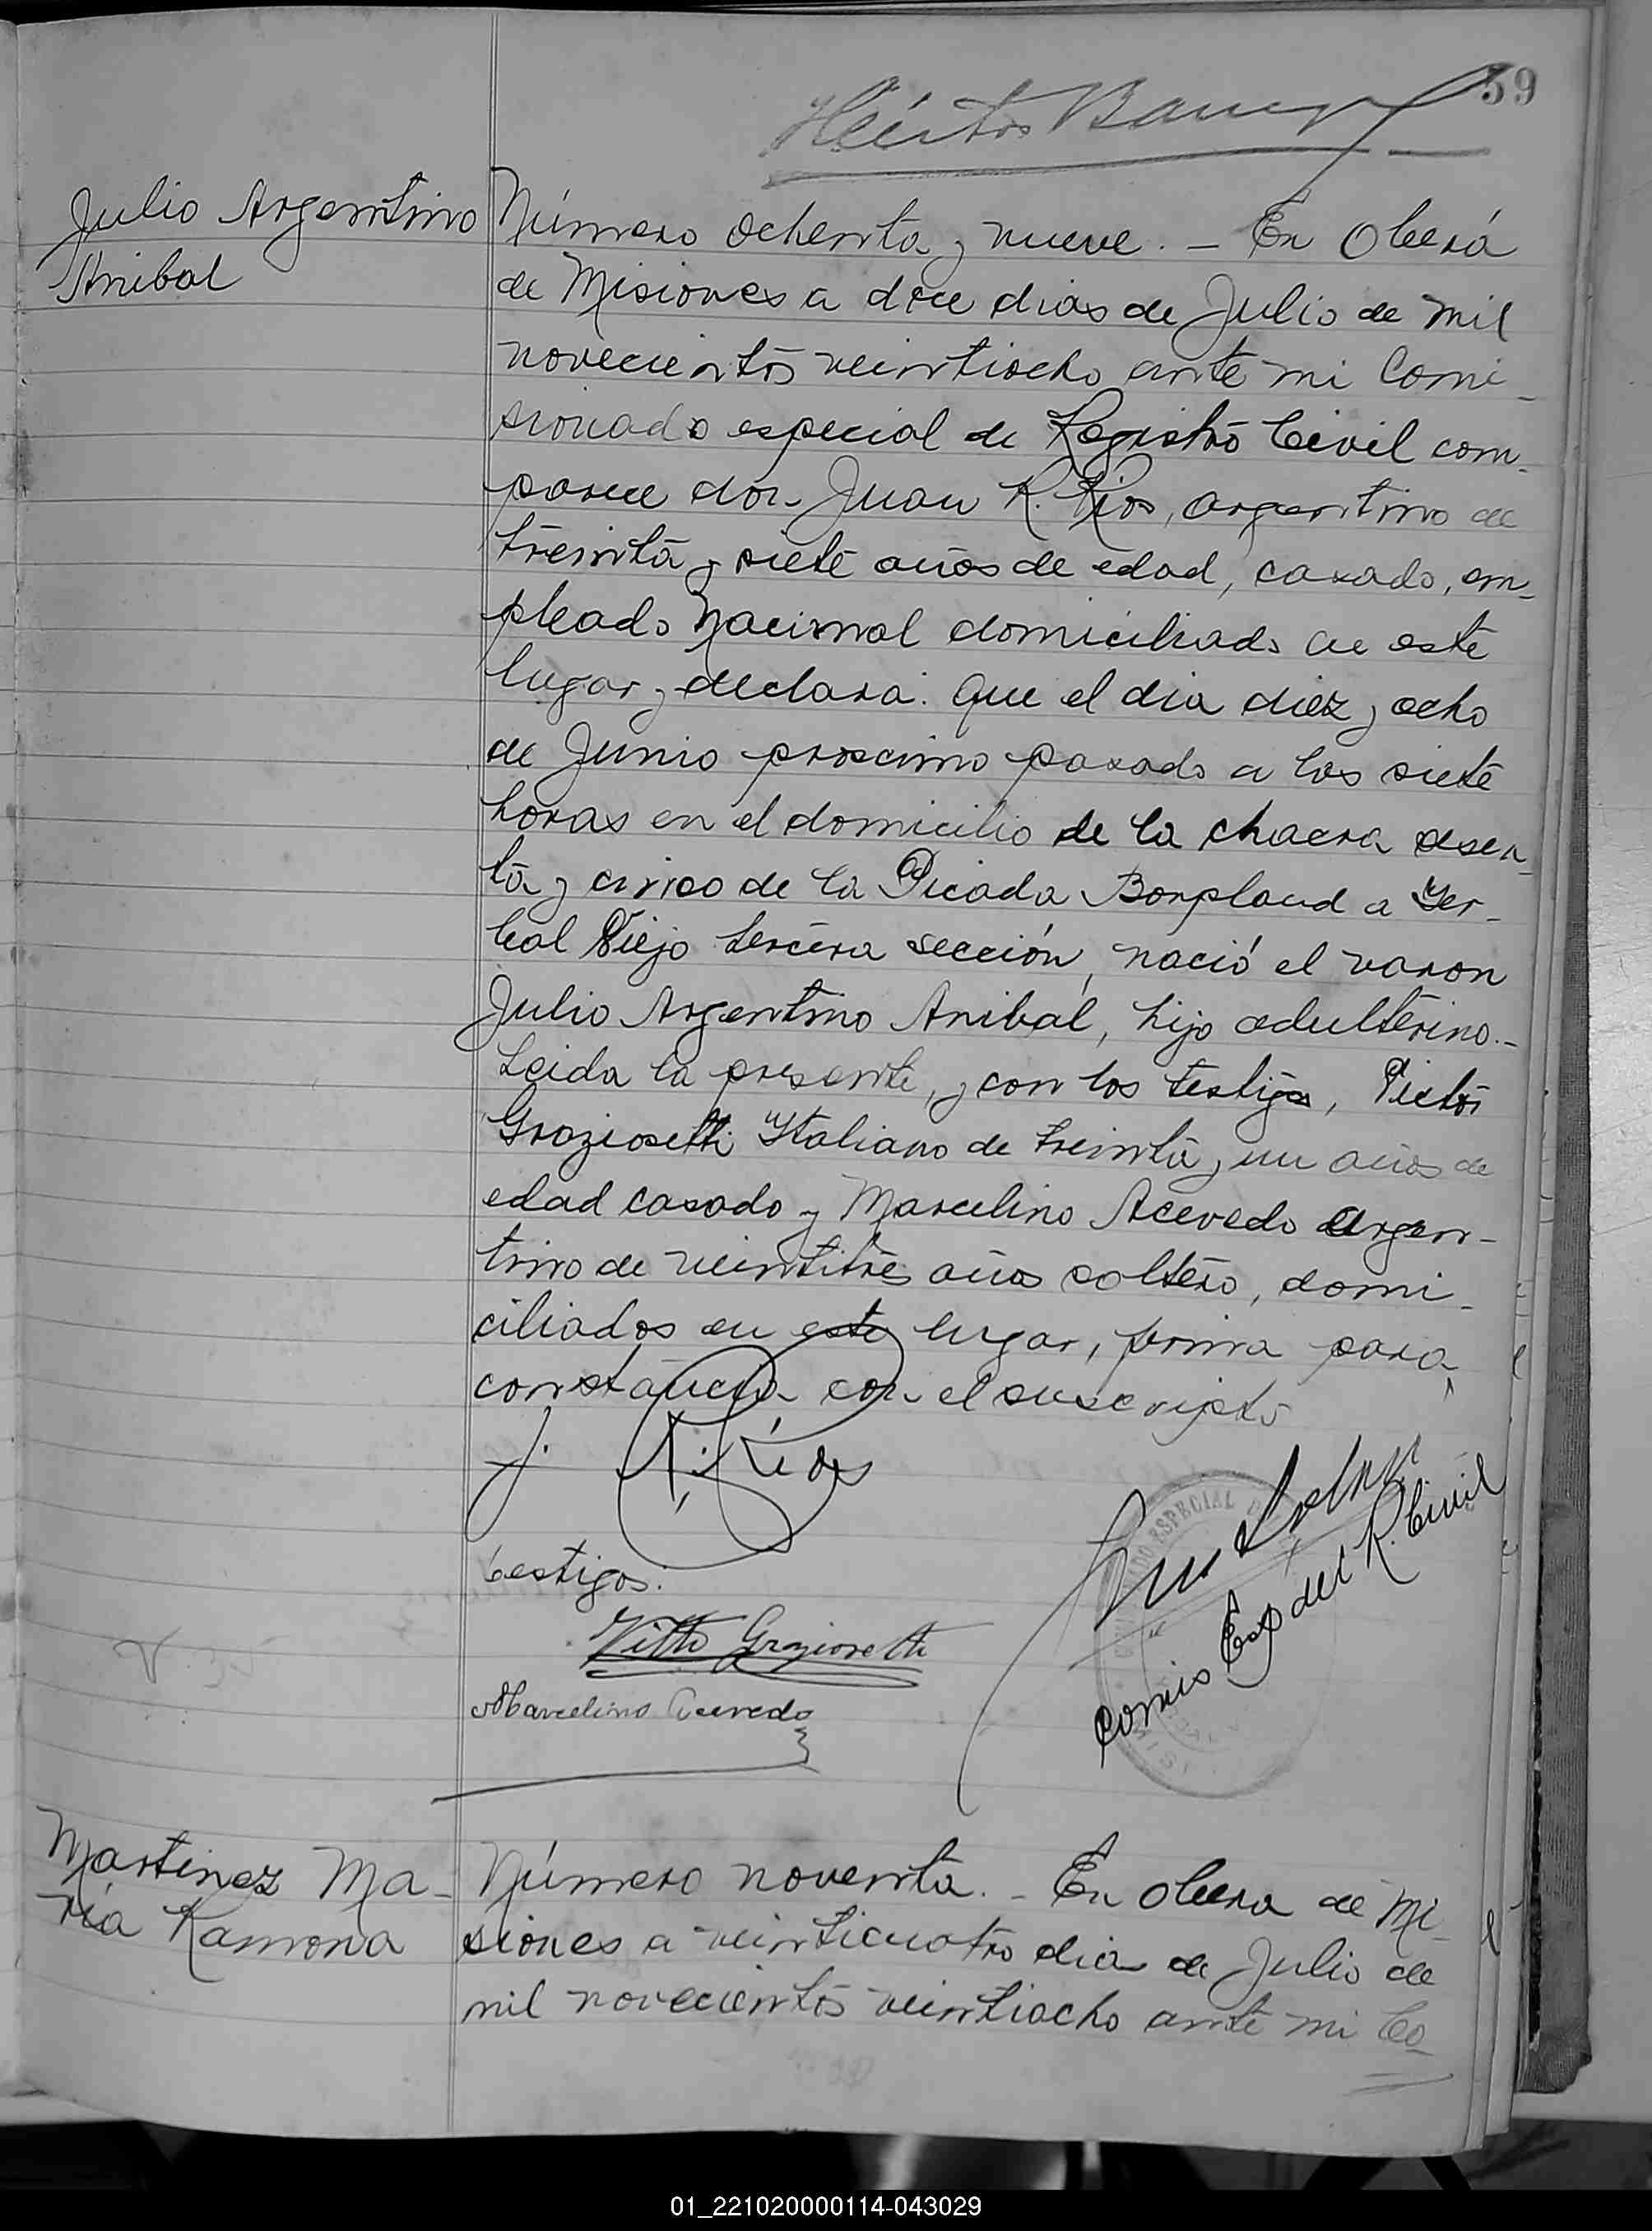 59
Héctor
Julio Argentino
Anibal
Número ochenta y nueve. – En Oberá
de Misiones a doce dias de Julio de mil
novecientos veintiocho ante mi Comi-
sionado especial de Registro Civil com-
parece don Juan R. Rios, argentino de
treinta y siete años de edad, casado, em-
pleado Nacional domiciliado en este
lugar y declara: Que el dia diez y ocho
de Junio proscimo pasado a las siete
horas en el domicilio de la chacra sesen-
ta y cinco de la Picada Bonpland a Yer-
bal Viejo tercera sección, nació el varon
Julio Argentino Anibal, hijo adulterino.-
Leida la presente, y con los testigos, Victor
Graziosetti Ytaliano de treinta y un años de
edad casado y Marcelino Acevedo argen-
tino de veintitrés años soltero, domi-
ciliados en este lugar, firma para
constancia con el suscripto
J. R. Rios
testigos:
Vitto Graziosetti
Marcelino Acevedo
Comis Esp del R. Civil
ESPECIAL
Martinez Ma-
ria Ramona
Número noventa. – En Obera de Mi-
siones a veinticuatro dias de Julio de
mil novecientos veintiocho ante mi Co-
01_221020000114-043029